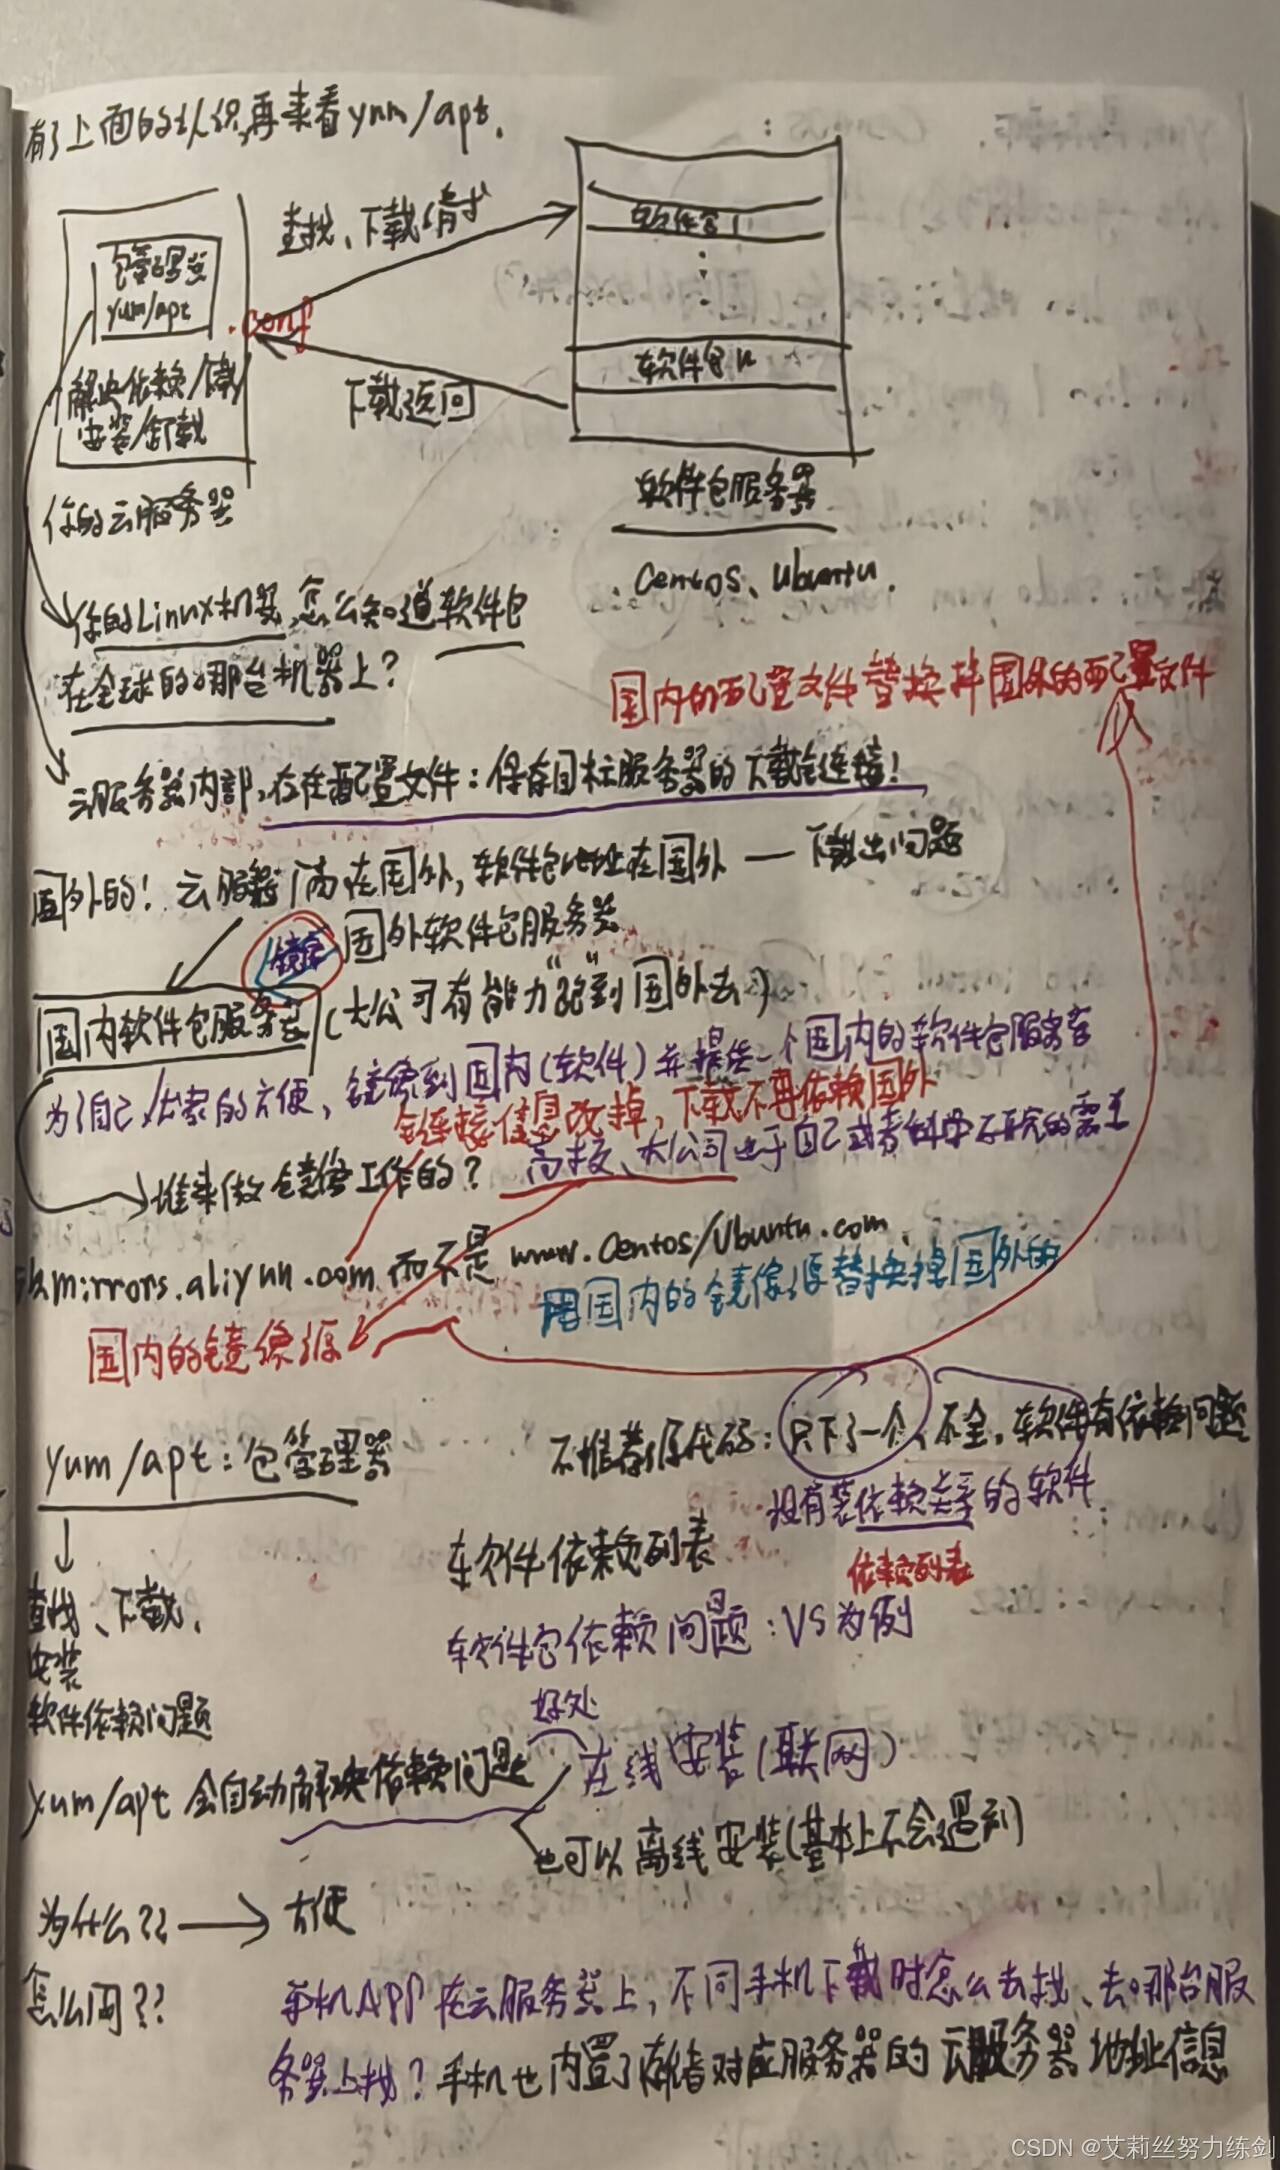 有了上面的认识,再来看yum/apt.
查找、下载请求
软件包1
包管理器
yum/apt
.conf
解决依赖/下载/
安装/卸载
下载返回
软件包n
你的云服务器
软件包服务器
Centos、Ubuntu.
你的Linux机器,怎么知道软件包
在全球的哪台机器上?
国内的配置文件替换掉国外的配置文件
云服务器内部,存在配置文件:保存目标服务器的下载链接!
国外的!云服务器厂商在国外,软件包地址在国外 — 下载出问题
镜像 国外软件包服务器
国内软件包服务器(大公司有能力“跑到国外去”)
为了自己/大家的方便,镜像到国内(软件)并提供一个国内的软件包服务器
链接信息改掉,下载不再依赖国外
谁来做镜像工作的?高校、大公司出于自己或者科学研究的需要
mirrors.aliyun.com而不是www.Centos/Ubuntu.com.
用国内的镜像源替换掉国外的
国内的镜像源
yum/apt:包管理器
不推荐源代码:只下了一个,不全,软件有依赖问题
没有装依赖关系的软件
软件依赖列表
依赖列表
查找、下载、
安装
软件包依赖问题:VS为例
软件依赖问题
好处
yum/apt会自动解决依赖问题
在线安装(联网)
也可以离线安装(基本上不会遇到)
为什么??→方便
怎么问??
手机APP在云服务器上,不同手机下载时怎么去找、去哪台服
务器上找?手机也内置了存储着对应服务器的云服务器地址信息
CSDN @艾莉丝努力练剑